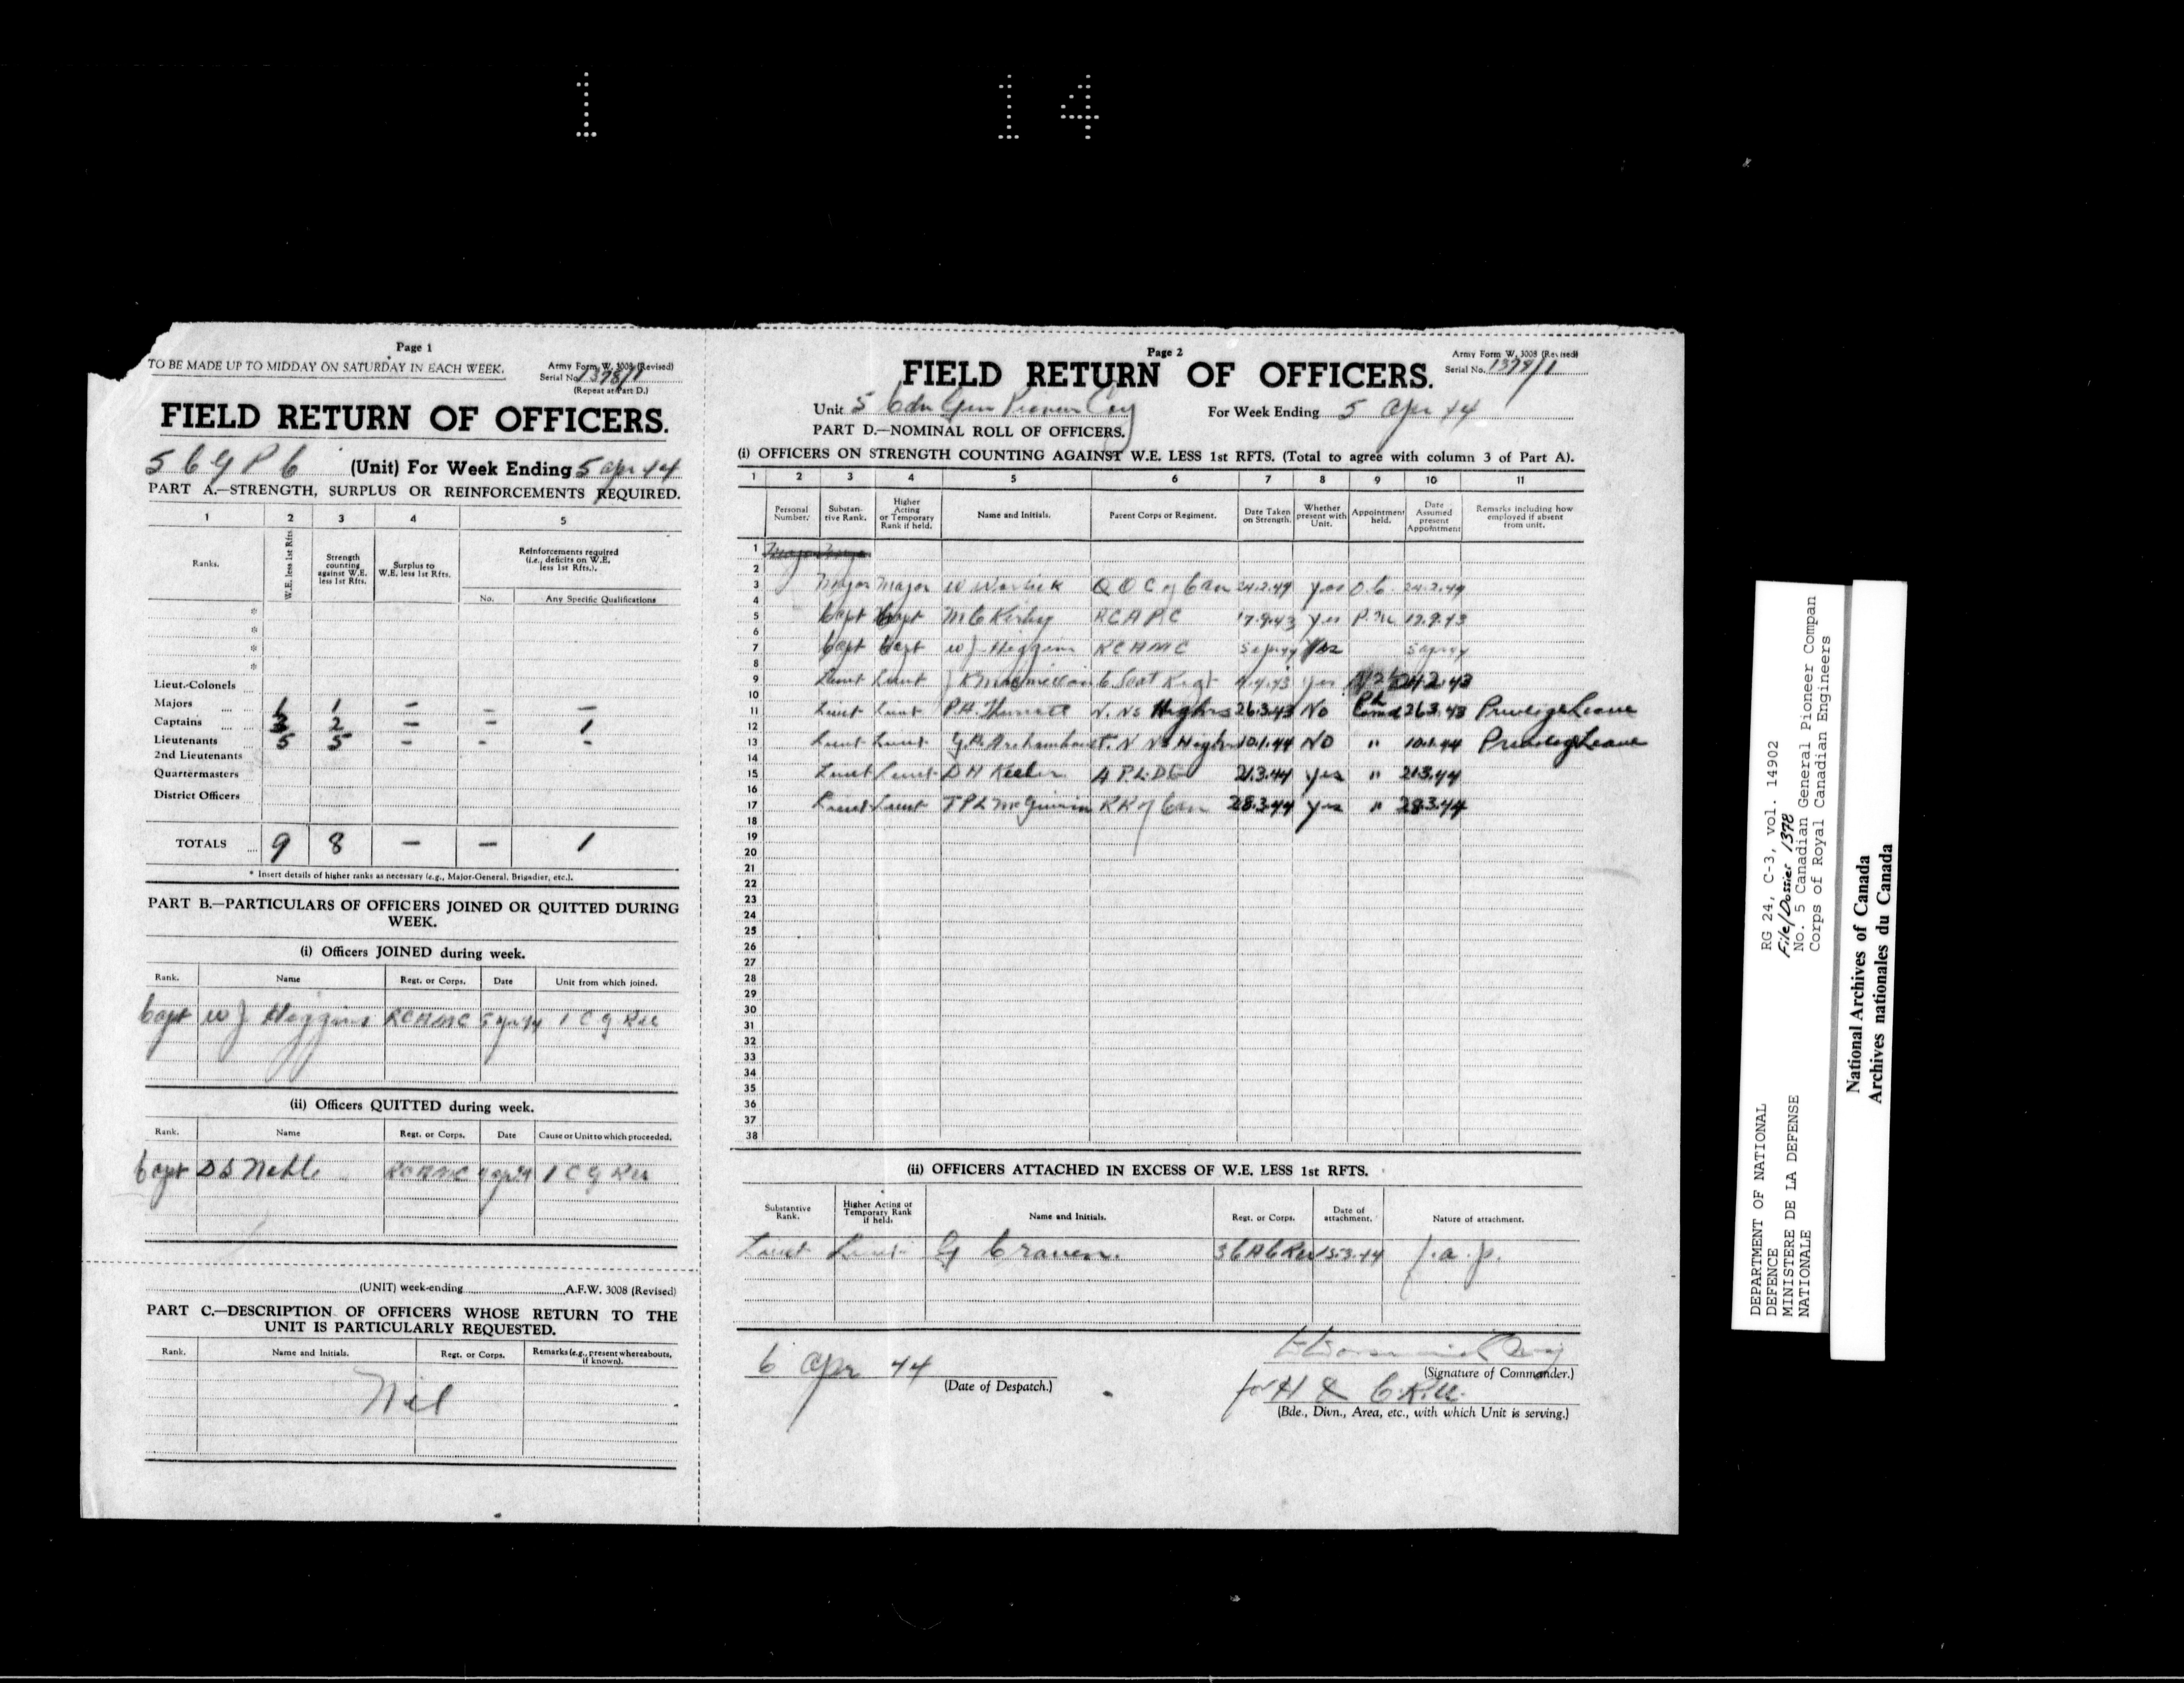 1 14
Page 1
TO BE MADE UP TO MIDDAY ON SATURDAY IN EACH WEEK.
Army Form W. 3008 (Revised)
Serial No. 1378/1
(Repeat at Part D.)
FIELD RETURN OF OFFICERS.
5 C G P C (Unit) For Week Ending 5 Apr 44
PART A.—STRENGTH, SURPLUS OR REINFORCEMENTS REQUIRED.
1 2 3 4 5
Ranks. W.E. less 1st Rfts Strength counting against W.E. less 1st Rfts. Surplus to W.E. less 1st Rfts. Reinforcements required (i.e., deficits on W.E. less 1st Rfts.).
No. Any Specific Qualifications
*
*
*
*
Lieut.-Colonels
Majors 1 1 – – –
Captains 3 2 – – 1
Lieutenants 5 5 – - -
2nd Lieutenants
Quartermasters
District Officers
TOTALS 9 8 – – 1
* Insert details of higher ranks as necessary (e.g., Major-General, Brigadier, etc.).
PART B.—PARTICULARS OF OFFICERS JOINED OR QUITTED DURING WEEK.
(i) Officers JOINED during week.
Rank. Name Regt. or Corps. Date Unit from which joined.
Capt W J Higgins RCAMC 5 Apr 44 1 C G RU
(ii) Officers QUITTED during week.
Rank. Name Regt. or Corps. Date Cause or Unit to which proceeded.
Capt RCAMC 1 C G RU
(UNIT) week-ending A.F.W. 3008 (Revised)
PART C.—DESCRIPTION OF OFFICERS WHOSE RETURN TO THE UNIT IS PARTICULARLY REQUESTED.
Rank. Name and Initials. Regt. or Corps. Remarks (e.g., present whereabouts, if known).
Nil
Page 2
Army Form W. 3008 (Revised)
Serial No. 1378/1
FIELD RETURN OF OFFICERS.
Unit 5 Cdn Gen Pioneer Coy For Week Ending 5 Apr 44
PART D.—NOMINAL ROLL OF OFFICERS.
(i) OFFICERS ON STRENGTH COUNTING AGAINST W.E. LESS 1st RFTS. (Total to agree with column 3 of Part A).
1 2 3 4 5 6 7 8 9 10 11
Personal Number. Substantive Rank. Higher Acting or Temporary Rank if held. Name and Initials. Parent Corps or Regiment. Date Taken on Strength. Whether present with Unit. Appointment held. Date Assumed present Appointment Remarks including how employed if absent from unit.
1
2
3 Major Major W Q O C of Can yes O.C.
4
5 Capt Capt M C Kirby RCAPC 17.9.43 yes P.M 17.9.43
6
7 Capt Capt W J Higgins RCAMC 5 Apr 44 Yes 5 Apr 44
8
9 Lieut Lieut J K Macmillan C Scot Regt yes
10
11 Lieut Lieut P.H. N. NS Highrs 26.3.43 No Pl Comd 26.3.43 Privilege Leave
12
13 Lieut Lieut G.R. Archambault N NS Highrs 10.1.44 NO " 10.1.44 Privilege Leave
14
15 Lieut Lieut D H Keeler 4 PLDG 21.3.44 yes " 21.3.44
16
17 Lieut Lieut T P L McGuinin RR of Can 28.3.44 yes " 28.3.44
18
19
20
21
22
23
24
25
26
27
28
29
30
31
32
33
34
35
36
37
38
(ii) OFFICERS ATTACHED IN EXCESS OF W.E. LESS 1st RFTS.
Substantive Rank. Higher Acting or Temporary Rank if held. Name and Initials. Regt. or Corps. Date of attachment. Nature of attachment.
Lieut Lieut G Craven. 3 CACRU 15.3.44 f.a.p.
6 Apr 44
(Date of Despatch.)
(Signature of Commander.)
for H Q C.R.U.
(Bde., Divn., Area, etc., with which Unit is serving.)
DEPARTMENT OF NATIONAL DEFENCE
MINISTERE DE LA DEFENSE NATIONALE
RG 24, C-3, vol. 14902
File/Dossier 1378
No. 5 Canadian General Pioneer Compan
Corps of Royal Canadian Engineers
National Archives of Canada
Archives nationales du Canada